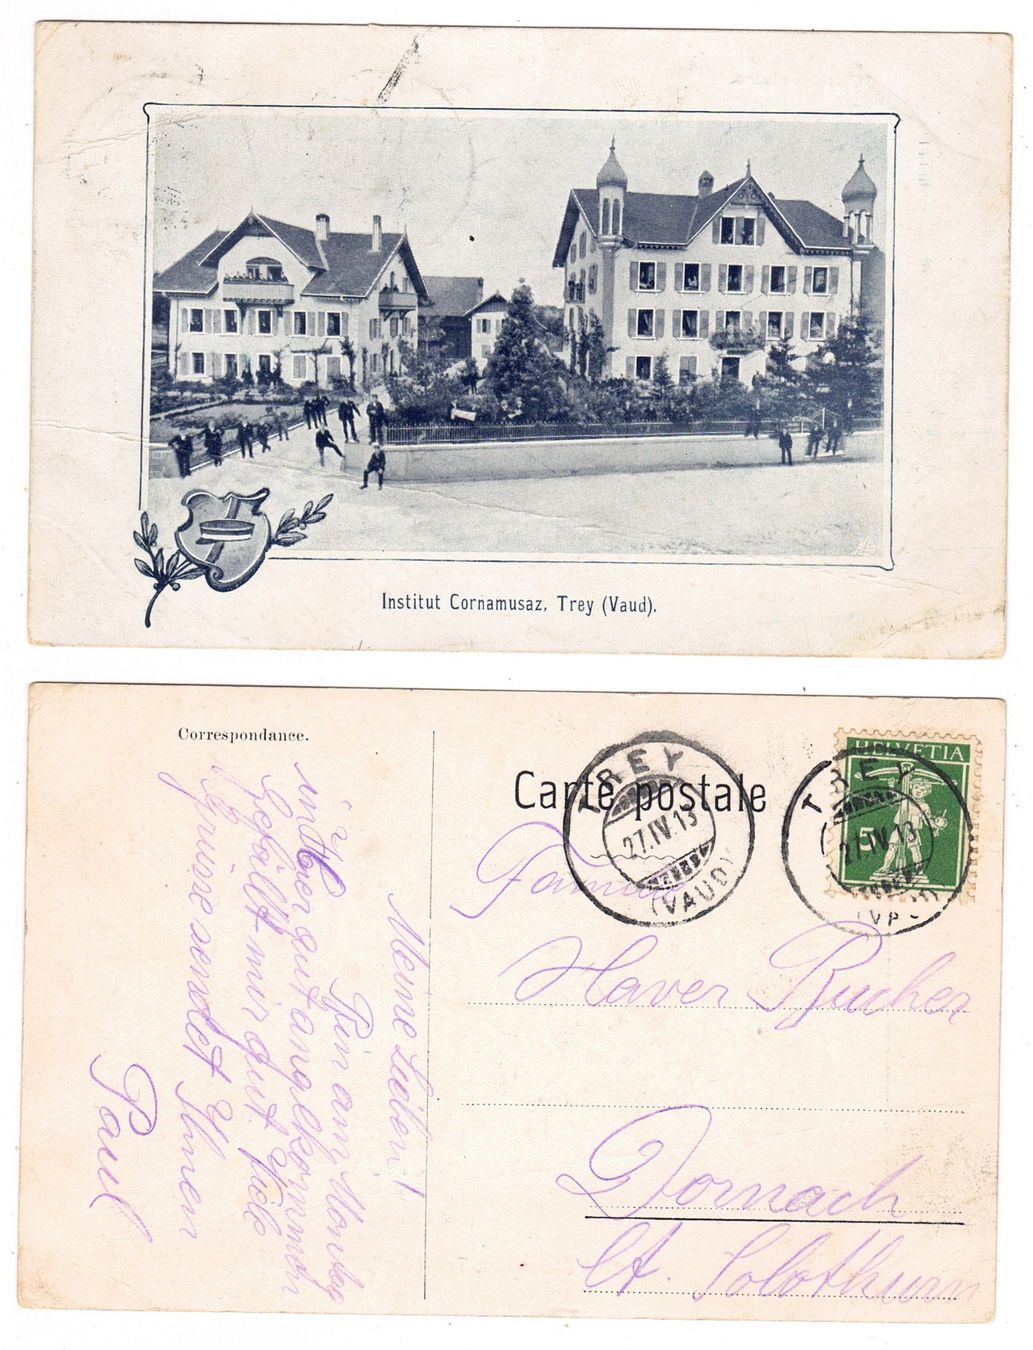 Institut Cornamusaz, Trey (Vaud).
Correspondance.
Carte postale
TREY
27.IV.13
(VAUD)
HELVETIA
5
TREY
27.IV.13
Familie
Xaver Bucher
Dornach
Kt. Solothurn
Meine Lieben!
Bin am Montag
in hier gut angekommen
Gefällt mir gut. Viele
Grüsse sendet Ihnen
Paul